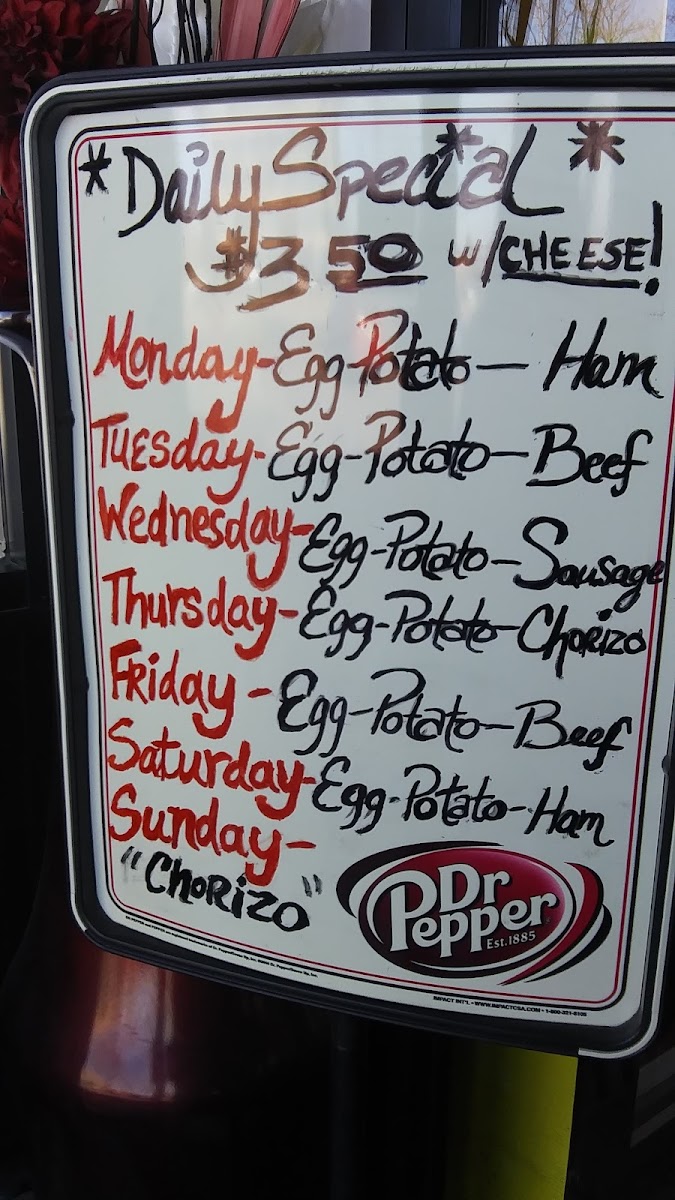 *Daily Special*
$3.50 w/CHEESE!
Monday-Egg-Potato-Ham
Tuesday-Egg-Potato-Beef
Wednesday-Egg-Potato-Sausage
Thursday-Egg-Potato-Chorizo
Friday-Egg-Potato-Beef
Saturday-Egg-Potato-Ham
Sunday-
"Chorizo"
Dr
Pepper
Est.1885
IMPACT INT'L • WWW.IMPACTCSA.COM • 1-800-321-8105